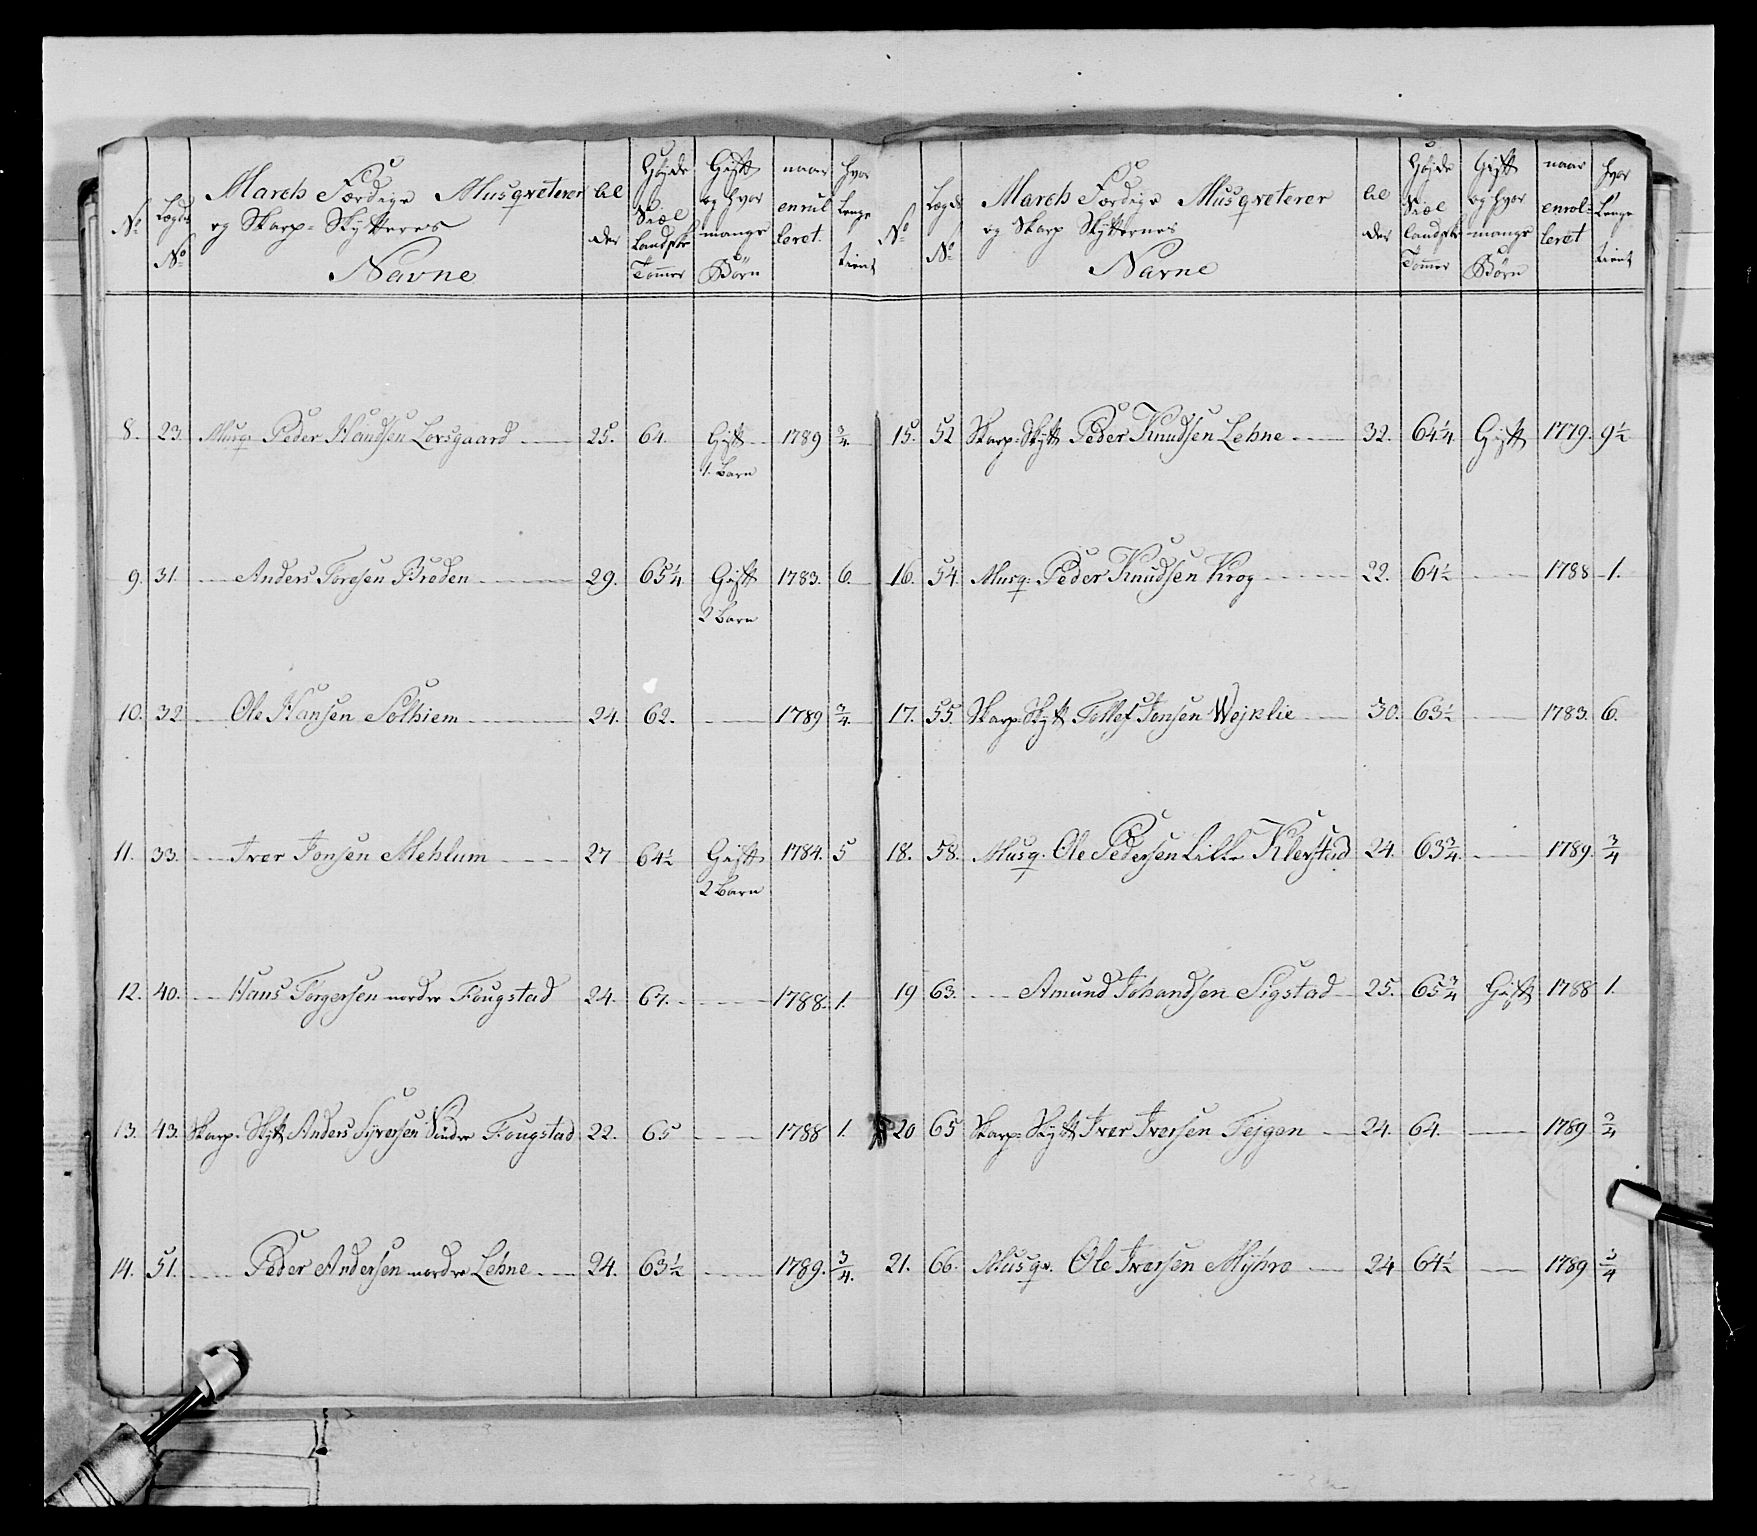 No
Lægds No
March Færdige Musqveterer og Skarp-Skytteres Navne
Al der
Høyde Siæl landske Tommer
Gift og hvor mange Børn
naar enrul leret.
hvor lenge tient
8. 23. Musq: Peder Handsen Lorsgaard 25. 64. Gift 1. Barn 1789 3/4.
9. 31. Anders Toresen Breden 29. 65 1/4 Gift 2 Barn 1783. 6.
10. 32 Ole Hansen Solhiem 24. 62. 1789 3/4.
11. 33. Iver Jonsen Mehlum 27 64 1/2 Gift 2 Barn 1784. 5
12. 40. Hans Torgersen nordre Fougstad 24. 67. 1788. 1.
13. 43. Skarp-Skytt Anders Syversen Sudre Fougstad 22. 65 1788 1.
14. 51. Peder Andersen nordre Lehne 24. 63 1/2 1789. 3/4.
No
Lægds No
March Færdige Musqveterer og Skarp Skytternes Navne
Al der
Høyde Siæl landske Tommer
Gift og hvor mange Børn
naar enrol- leret
hvor lenge tient
15. 52 Skarp-Skytt Peder Knudsen Lehne 32. 64 1/4 Gift 1779. 9 1/2
16. 54. Musq: Peder Knudsen Krog 22. 64 1/2 1788 1.
17. 55. Skarp-Skytt Tollef Jonsen Wejklie 30. 63 1/2 1783. 6.
18. 58. Musq. Ole Pedersen Lille Klevstad 24. 63 3/4. 1789. 3/4
19 63. Amund Johandsen Sigstad 25. 65 3/4 Gift 1788 1.
20 65 Skarp-Skytt Iver Iversen Fejgen 24. 64. 1789 3/4
21. 66. Musqv. Ole Iversen Myhre 24 64 1/2 1789 3/4